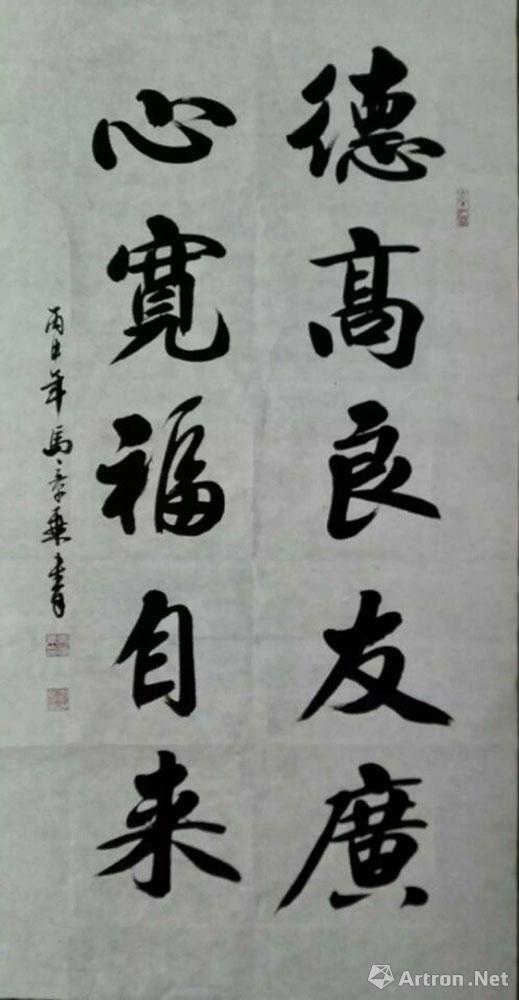 德高良友廣
心寬福自来
丙申年馬彦乗書
Artron.Net